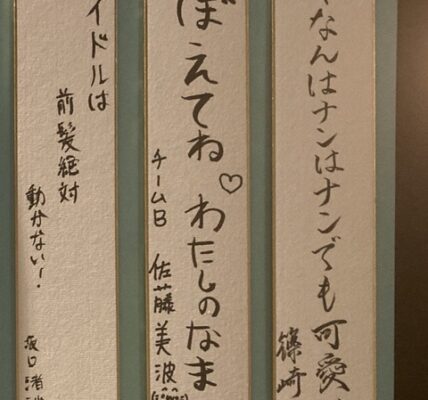 なんはナンはナンでも可愛
篠崎
ぼえてね♡わたしのなま
チームB 佐藤美波
イドルは
前髪絶対
動かない!
坂口渚沙